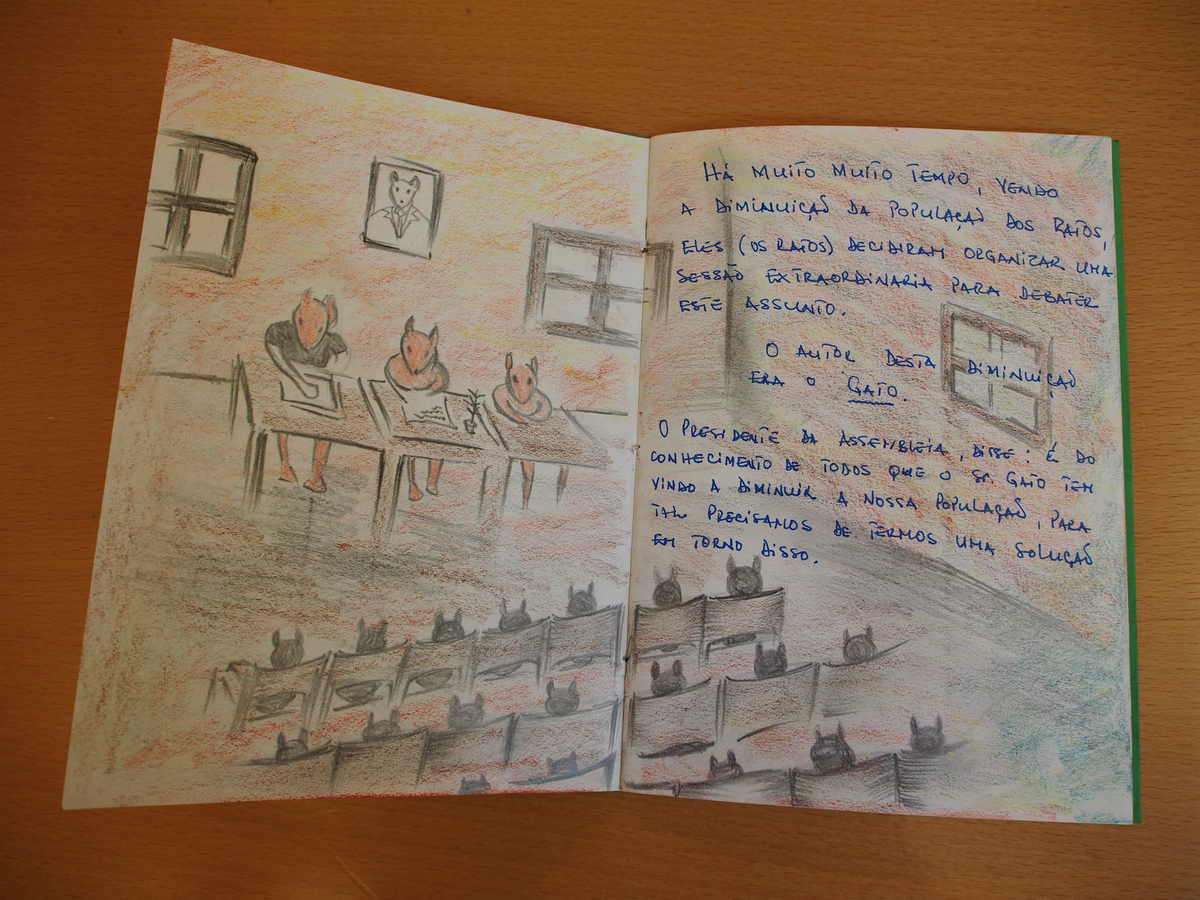 HÁ MUITO MUITO TEMPO, VENDO
A DIMINUIÇÃO DA POPULAÇÃO DOS RATOS,
ELES (OS RATOS) DECIDIRAM ORGANIZAR UMA
SESSÃO EXTRAORDINARIA PARA DEBATER
ESTE ASSUNTO.
O AUTOR DESTA DIMINUIÇÃO
ERA O GATO.
O PRESIDENTE DA ASSEMBLEIA, DISSE: É DO
CONHECIMENTO DE TODOS QUE O SR. GATO TEM
VINDO A DIMINUIR A NOSSA POPULAÇÃO, PARA
TAL PRECISAMOS DE TERMOS UMA SOLUÇÃO
EM TORNO DISSO.